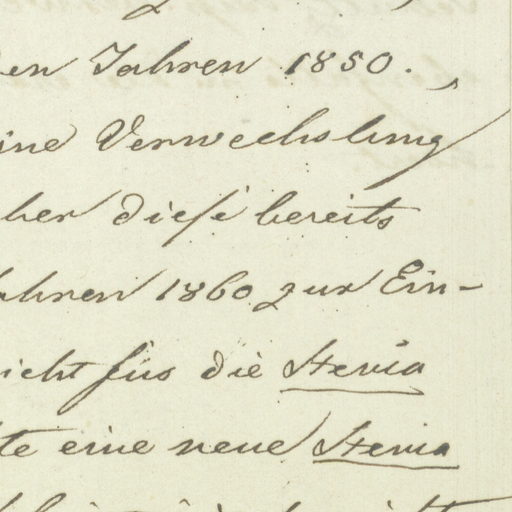 en Jahren 1850.
ine Verwechslung
her diese bereits
ahren 1860 zur Ein-
icht für die Stevia
te eine neue Stevia